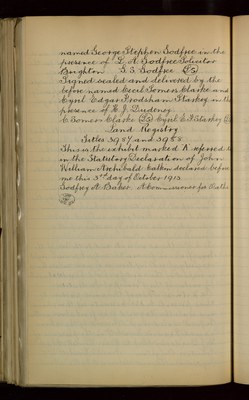 named George Stephen Godfree in the
presence of L. A. Godfree Solicitor
Brighton G. S. Godfree (LS)
Signed sealed and delivered by the
before named Cecil Somers Clarke and
Cyril Edgar Frodsham Starkey in th
presence of H. J. Dudeney
C. Somers Clarke (LS) Cyril E. F. Starkey (LS
Land Registry
Titles 3987 and 3988
This is the exhibit marked A referred to
in the Statutory Declaration of John
William Archibald declared befor
me this 3rd day of October 1913.
Godfrey A. Baker. A Commissioner for Oaths